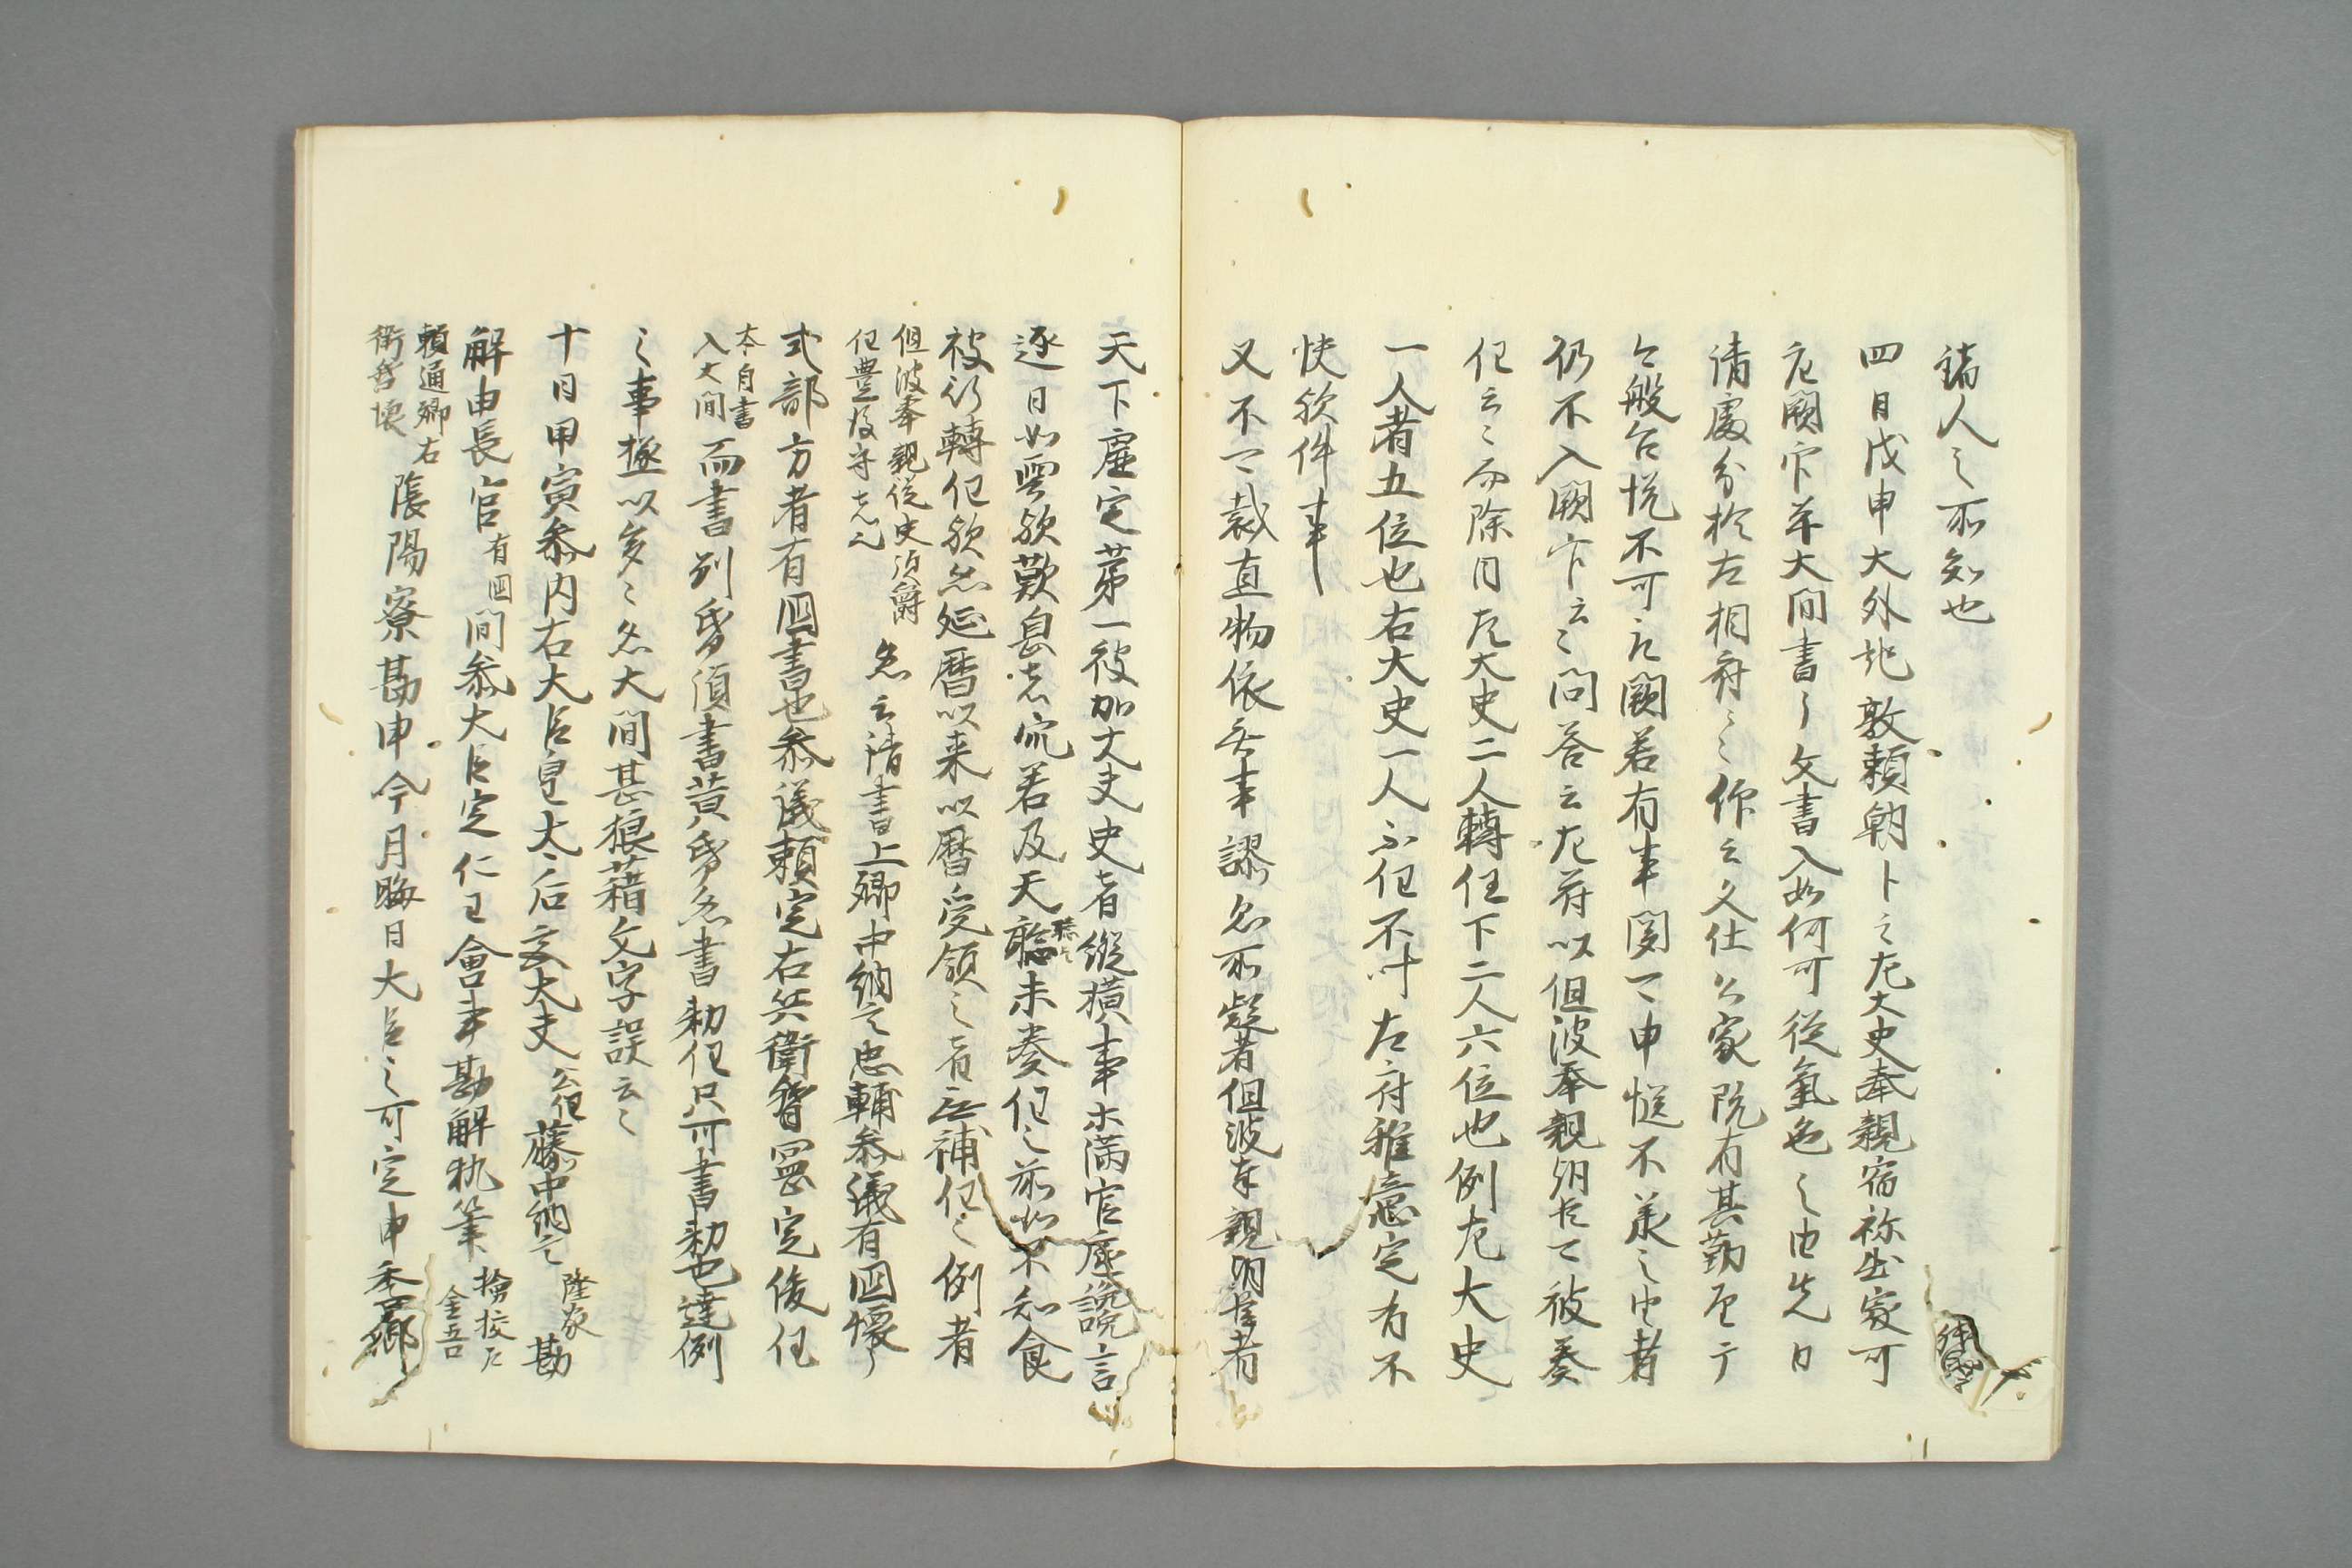 諸人之所知也
四日戊申大外記敦頼朝卜云左大史奉親宿祢出家可
在闕官并大間書々文書入如何可従氣色之由先日
請處分於左相府云々仰云久仕公家既有其勤至于
今般台悦不可立闕若有事関可申慥不承之由者
仍不入闕官云々問答云左府以但波奉親朝臣可被奏
任云々而除目左大史二人轉任下二人六位也例左大史
一人者五位也右大史一人不任不叶左府雅意定有不
快欤件事
又不可裁直物依無事謬忽所疑者但波奉親朝臣者
天下塵定第一被加大史史者縦横事未満官底謗言
逐日如雲欤歎息者流若及天聡未奏任之前如不知食
被行轉任欤然延暦以来以暦受領之者無補任之例者
但波奉親従史須爵
任豊後守老之
忽云清書上卿中納言忠輔参議有国懐々
式部方者有国書也参議頼定右兵衛督罷定後任
本自書
入大間
而書別帋須書黄帋忽書勅任只可書勅也違例
之事極以多々忽大間甚狼藉文字誤云々
十日甲寅参内右大臣皇太后宮大夫
公任
藤中納言
隆家
勘
解由長官
有国
間参大臣定仁王會事勘解執筆
檢校左
金吾
頼通卿右
衛督懐
陰陽寮勘申今月晦日大臣云可定申香